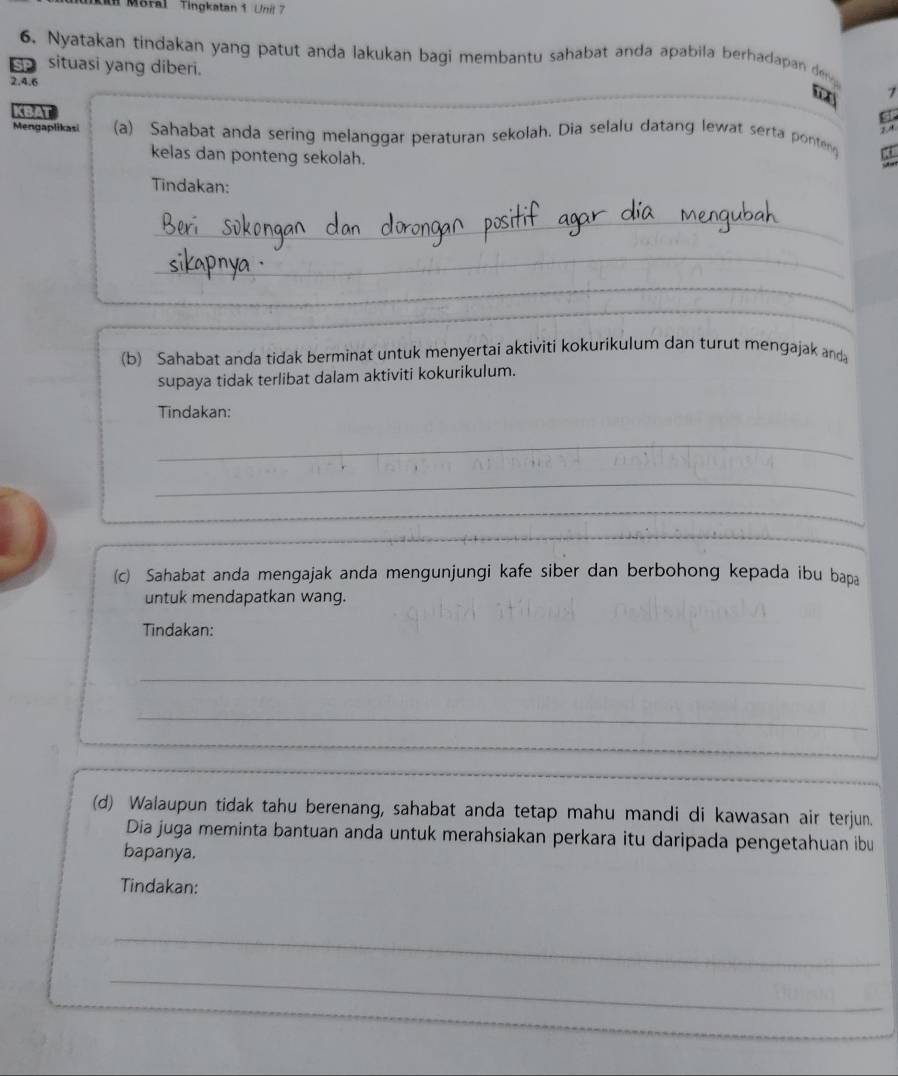 Moral Tingkatan 1 Unit 7
6. Nyatakan tindakan yang patut anda lakukan bagi membantu sahabat anda apabila berhadapan
SP situasi yang diberi.
2.4.6
TP4
7
KBAT
Mengaplikasi (a) Sahabat anda sering melanggar peraturan sekolah. Dia selalu datang lewat serta ponteng
kelas dan ponteng sekolah.
Tindakan:
Beri sokongan dan dorongan positif agar dia mengubah
sikapnya.
(b) Sahabat anda tidak berminat untuk menyertai aktiviti kokurikulum dan turut mengajak anda
supaya tidak terlibat dalam aktiviti kokurikulum.
Tindakan:
(c) Sahabat anda mengajak anda mengunjungi kafe siber dan berbohong kepada ibu bapa
untuk mendapatkan wang.
Tindakan:
(d) Walaupun tidak tahu berenang, sahabat anda tetap mahu mandi di kawasan air terjun.
Dia juga meminta bantuan anda untuk merahsiakan perkara itu daripada pengetahuan ibu
bapanya.
Tindakan: